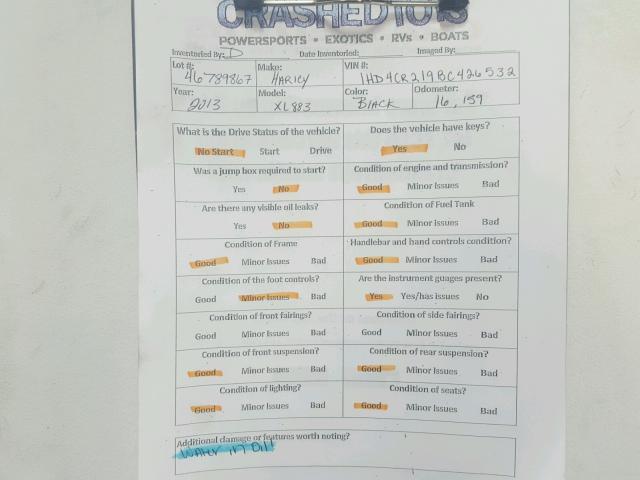 CRASHEDTOYS
POWERSPORTS • EXOTICS • RVs • BOATS
Inventoried By: D Date Inventoried: Imaged By:
Lot #: 46789867 Make: HARLEY VIN #: 1HD4CR219BC426532
Year: 2013 Model: XL883 Color: BLACK Odometer: 16,159
What is the Drive Status of the vehicle? Does the vehicle have keys?
No Start Start Drive Yes No
Was a jump box required to start? Condition of engine and transmission?
Yes No Good Minor Issues Bad
Are there any visible oil leaks? Condition of Fuel Tank
Yes No Good Minor Issues Bad
Condition of Frame Handlebar and hand controls condition?
Good Minor Issues Bad Good Minor Issues Bad
Condition of the foot controls? Are the instrument guages present?
Good Minor Issues Bad Yes Yes/has issues No
Condition of front fairings? Condition of side fairings?
Good Minor Issues Bad Good Minor Issues Bad
Condition of front suspension? Condition of rear suspension?
Good Minor Issues Bad Good Minor Issues Bad
Condition of lighting? Condition of seats?
Good Minor Issues Bad Good Minor Issues Bad
Additional damage or features worth noting?
WATER IN OIL!